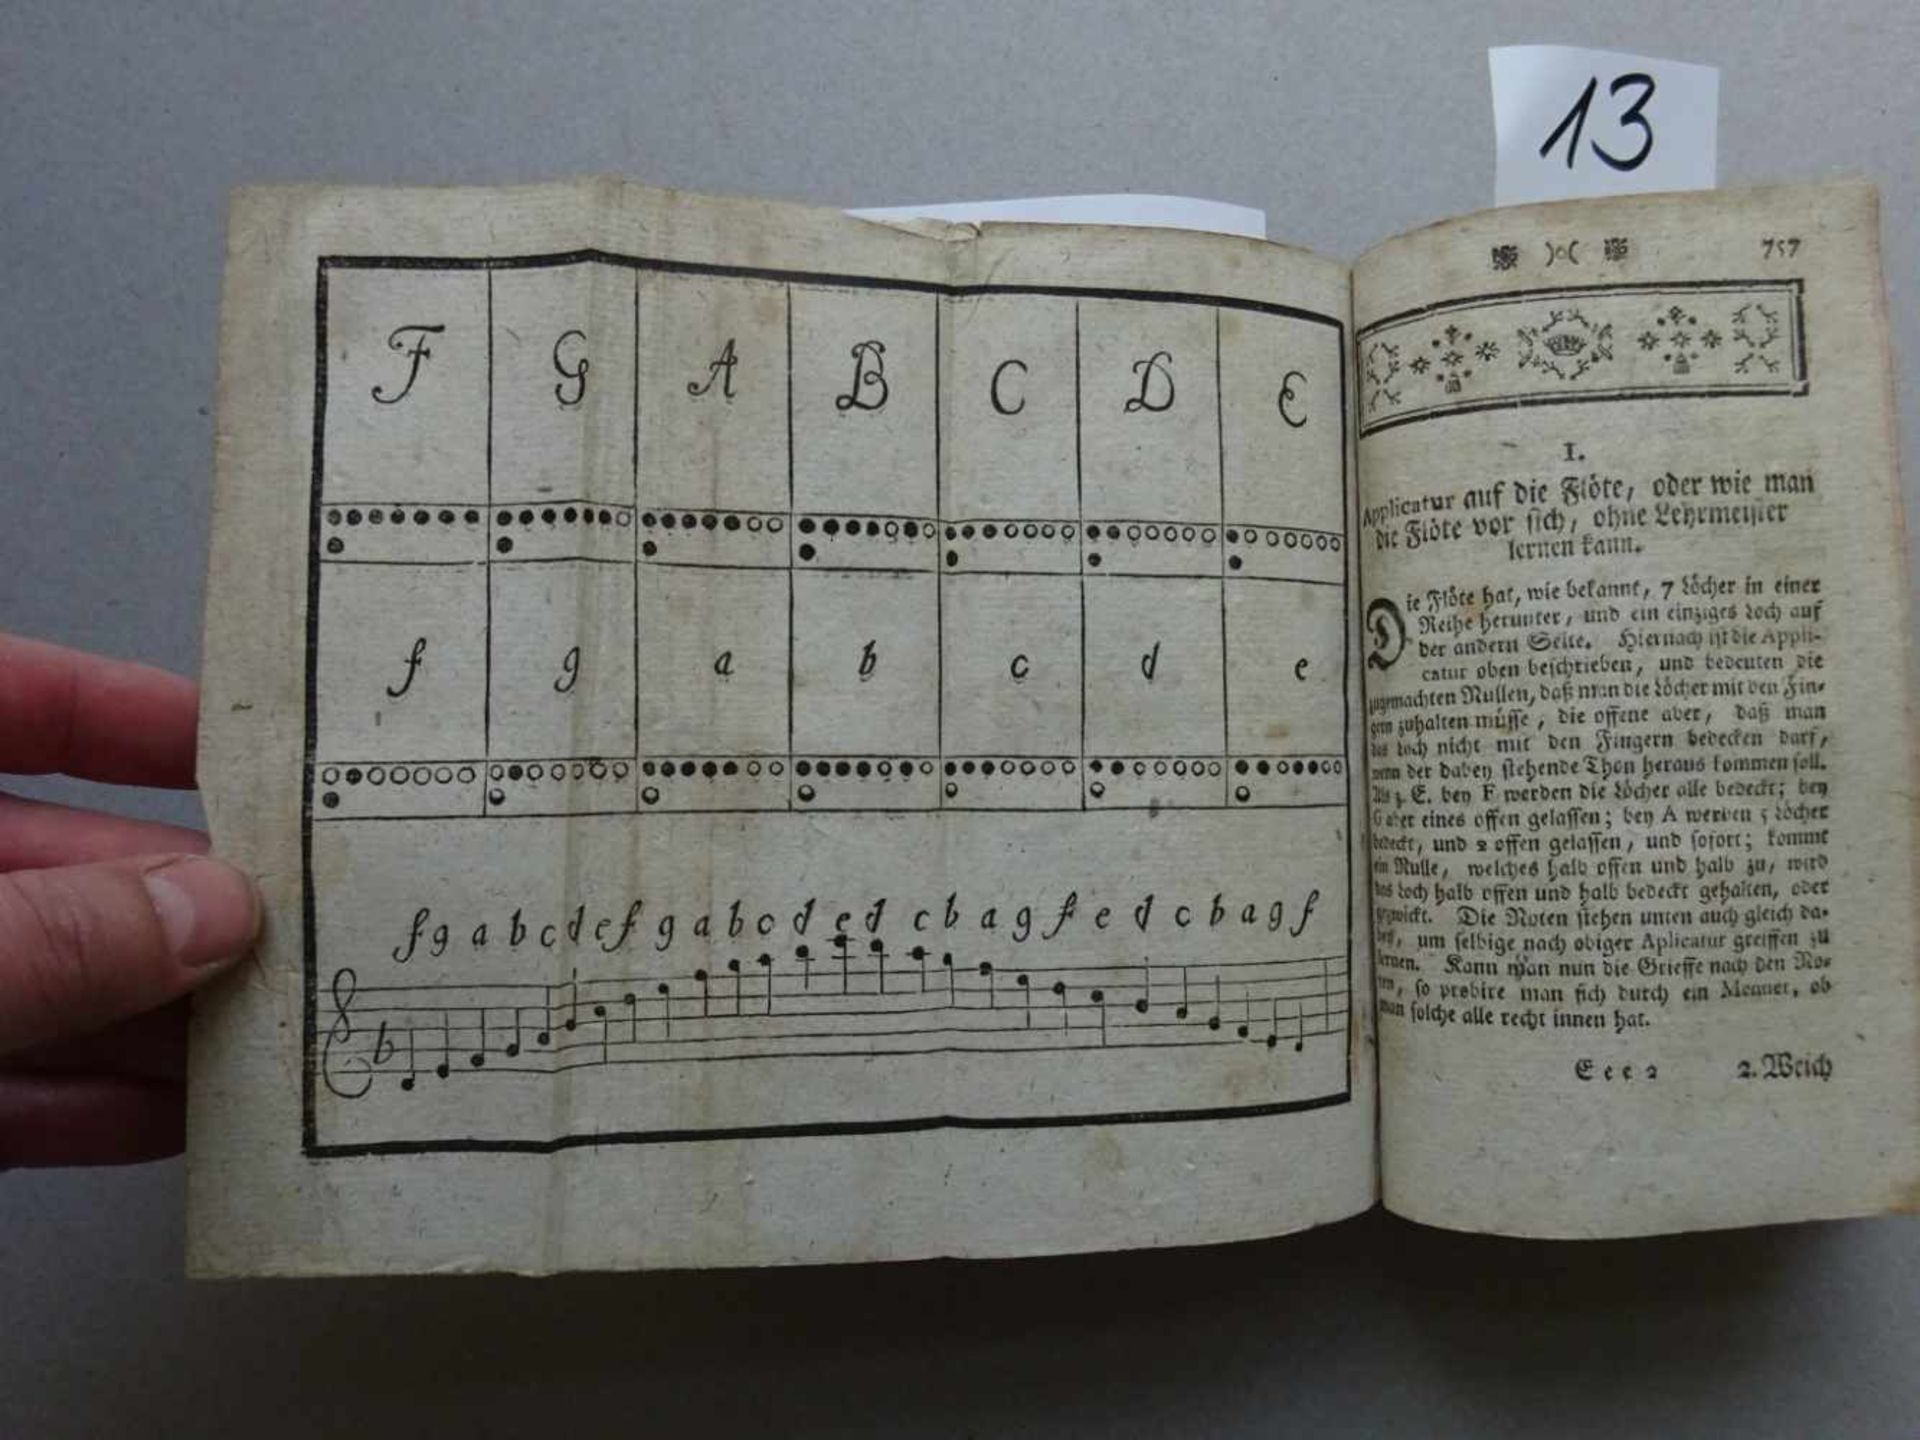 13
F G A B C D E
f g a b c d e
f g a b c d e f g a b c d e d c b a g f e d c b a g f
b
757
I.
Applicatur auf die Flöte, oder wie man
die Flöte vor sich, ohne Lehrmeister
lernen kann.
Die Flöte hat, wie bekannt, 7 Löcher in einer
Reihe herunter, und ein einziges Loch auf
der andern Seite. Hiernach ist die Appli-
catur oben beschrieben, und bedeuten die
zugemachten Nullen, daß man die Löcher mit den Fin-
gern zuhalten müsse, die offene aber, daß man
das Loch nicht mit den Fingern bedecken darf,
wenn der dabey stehende Thon heraus kommen soll.
Als z. E. bey F werden die Löcher alle bedeckt; bey
G aber eines offen gelassen; bey A werden 5 Löcher
bedeckt, und 2 offen gelassen, und sofort; kommt
ein Nulle, welches halb offen und halb zu, wird
das Loch halb offen und halb bedeckt gehalten, oder
gezwickt. Die Noten stehen unten auch gleich da-
bey, um selbige nach obiger Aplicatur greiffen zu
lernen. Kann man nun die Grieffe nach den No-
ten, so probire man sich durch ein Menuet, ob
man solche alle recht innen hat.
Eee 2 2. Weich